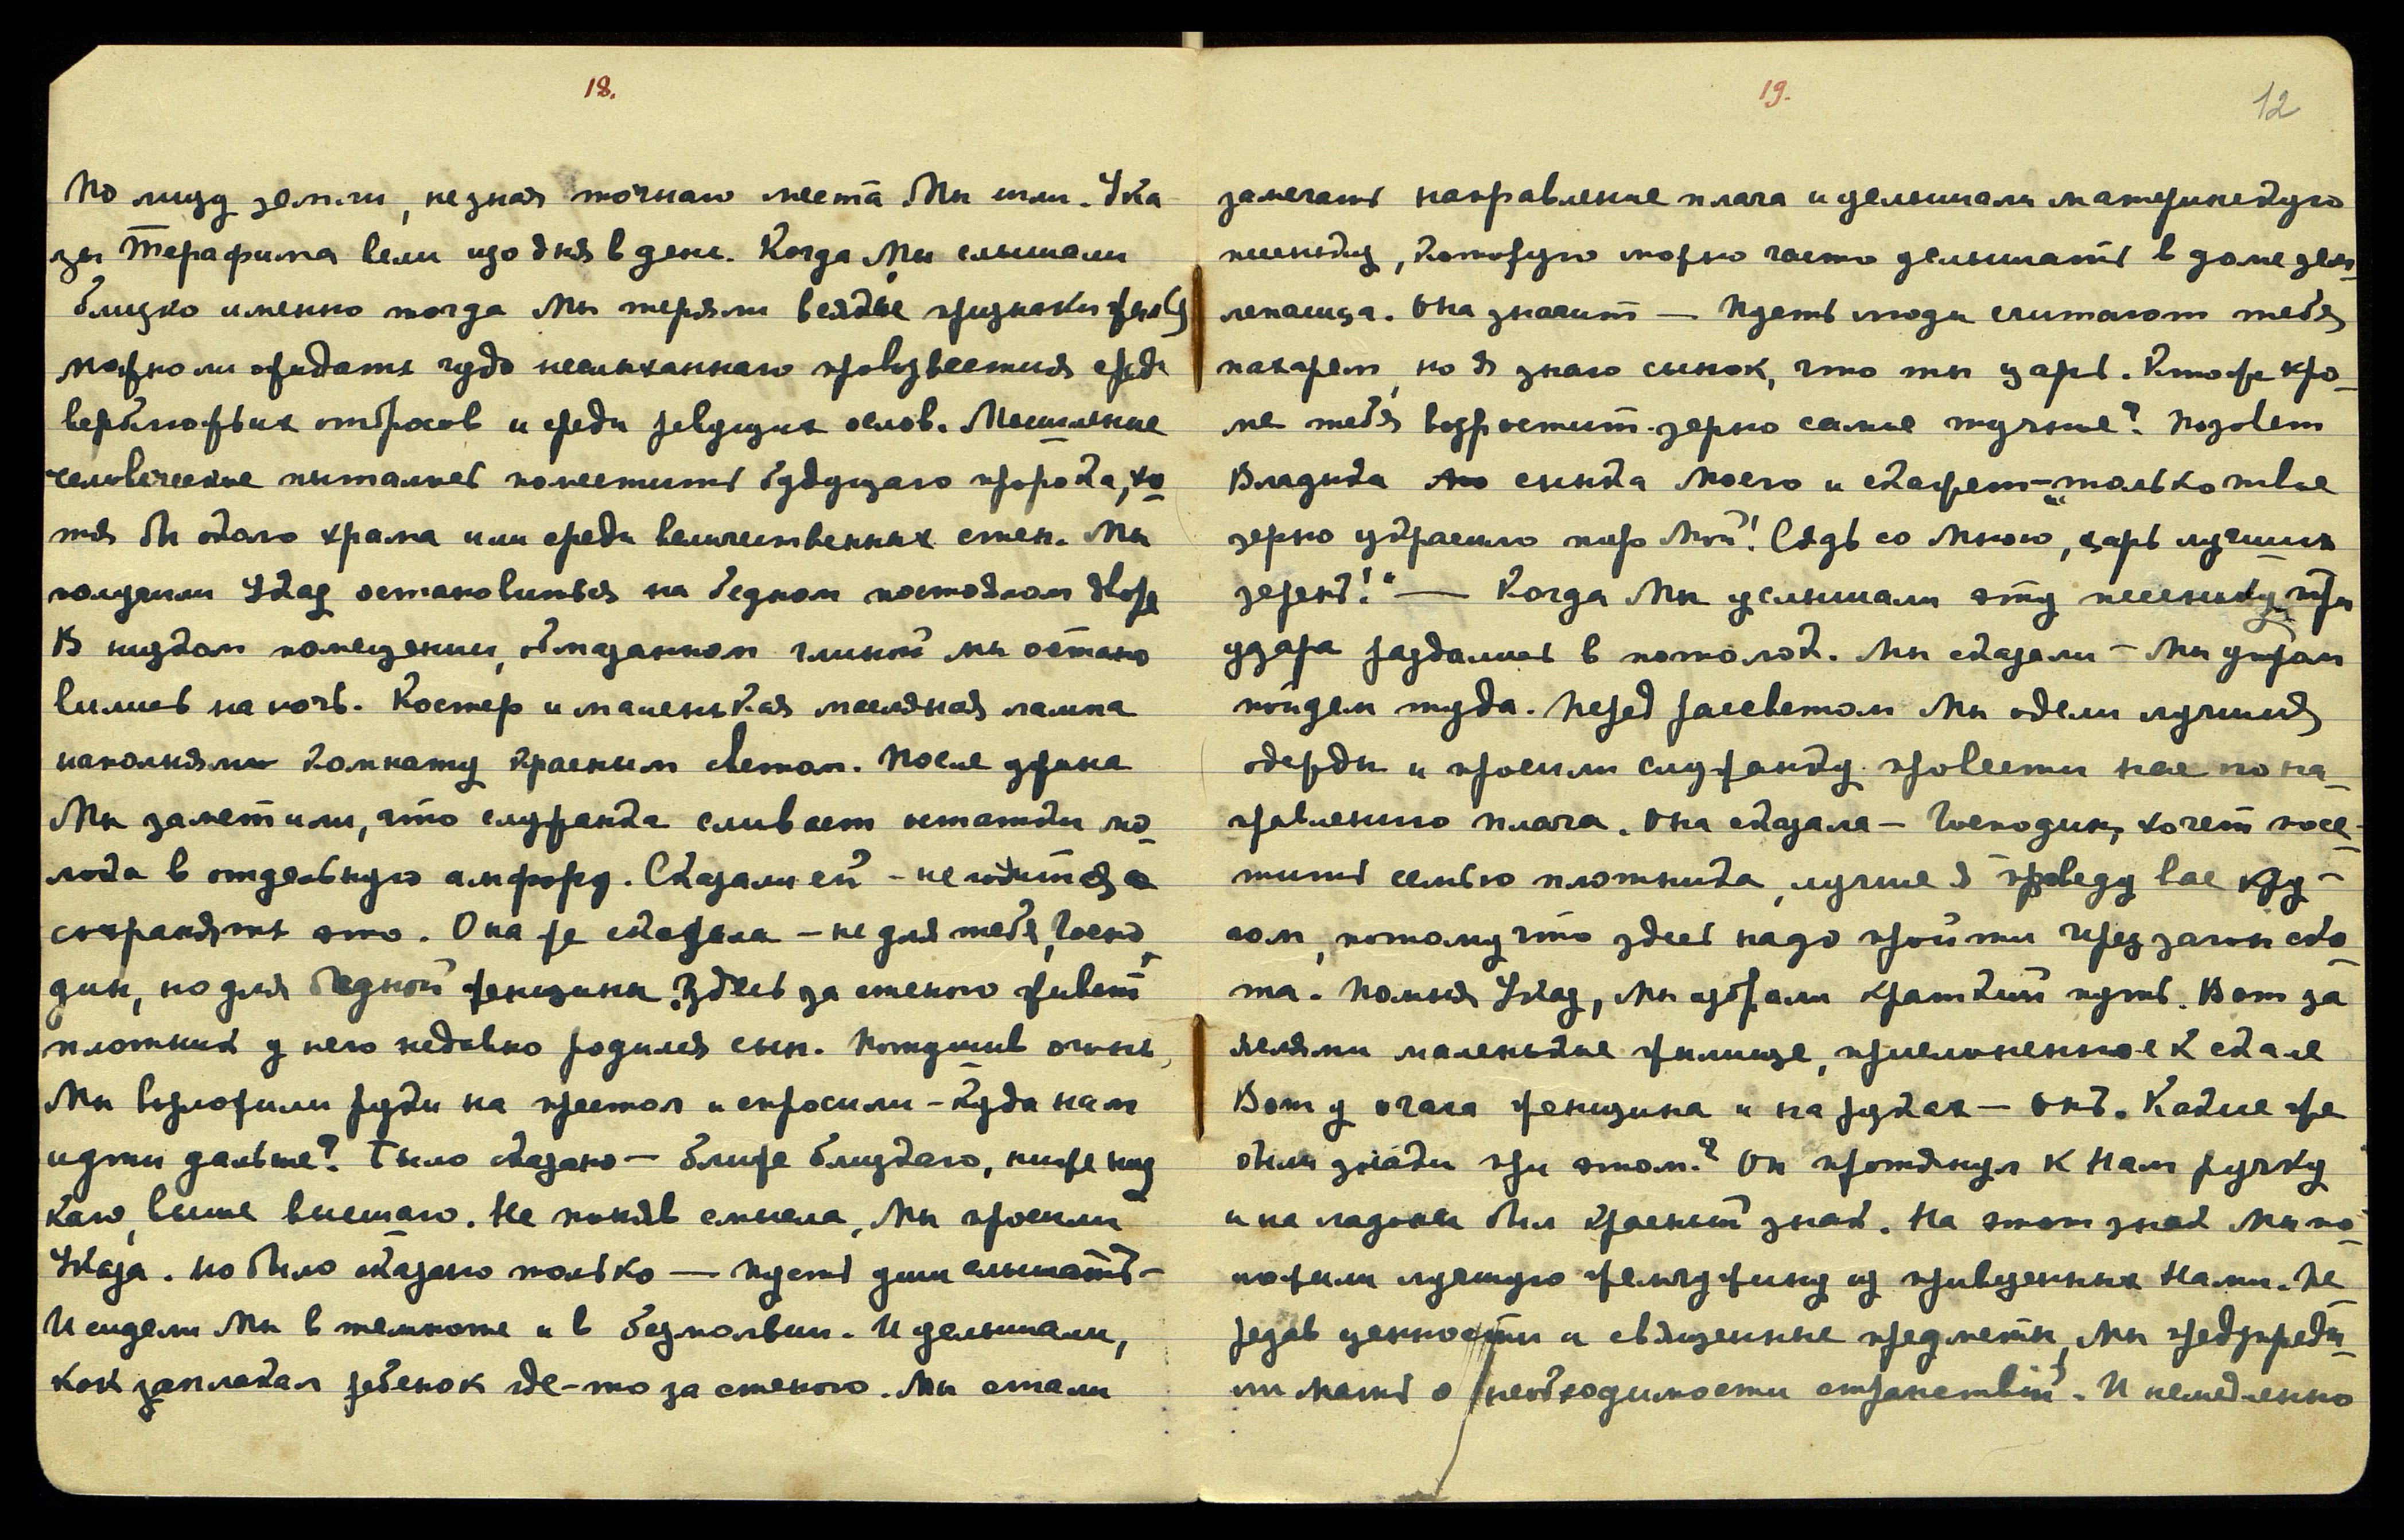 18.
По лицу земли, не зная точнаго места Мы шли. Ука
зы Терафима вели изо дня в день. Когда Мы слышали
близко именно тогда Мы теряли всякие признаки
Можно ли ожидать чудо неслыханнаго провозвестия среди
верблюжьих отбросов и среди ревущих ослов. Мышление
человеческое пыталось поместить будущаго пророка, хо
тя бы около храма или среди величественных стен. Мы
получили Указ остановиться на бедном постоялом дворе
В низком помещении, обмазанном глиной мы остано
вились на ночь. Костер и маленькая масляная лампа
наполняли комнату красным светом. После ужина
Мы заметили, что служанка сливает остатки мо
лока в отдельную амфору. Сказали ей – не годится
сохранять это. Она же сказала – не для тебя, Госпо
дин, но для бедной женщины. Здесь за стеною живет
плотник у него недавно родился сын. Потушив огонь,
Мы возложили руки на престол и спросили – Куда нам
идти дальше? Было сказано – ближе близкаго, ниже низ
каго, выше высшаго. Не поняв смысла, Мы просили
Указа. Но было сказано только — пусть уши слышать –
И сидели Мы в темноте и в безмолвии. И услышали,
как заплакал ребенок где-то за стеною. Мы стали
19.
12
замечать направление плача и услышали материнскую
песенку, которую можно часто услышать в доме зем
лепашца. Она значит — Пусть люди считают тебя
пахарем, но я знаю сынок, что ты царь. Кто же кро_
ме тебя возростит зерно самое тучное? Позовет
Владыка сынка моего и скажет – „только твое
зерно украсило пир Мой! Сядь со Мною, царь лучших
зерен!" — Когда Мы услышали эту песенку три
удара раздались в потолок. Мы сказали – Мы утром
пойдем туда. Перед рассветом Мы одели лучшия
одежды и просили служанку провести нас по на_
правлению плача. Она сказала – Господин, хочет посе–
тить семью плотника, лучше я проведу вас кру–
гом, потому что здесь надо пройти через загон ско
та. Помня Указ, Мы избрали краткий путь. Вот за
яслями маленькие жилище, прислоненное к скале
Вот у очага женщина и на руках — Онъ. Какие же
были знаки при этом? Он протянул к Нам ручку
и на ладони был красный знак. На этот знак Мы по
ложили лучшую жемчужину из привезенных Нами. Пе
редав ценности и священные предметы, Мы предупреди_
ли мать о необходимости странствий. И немедленно